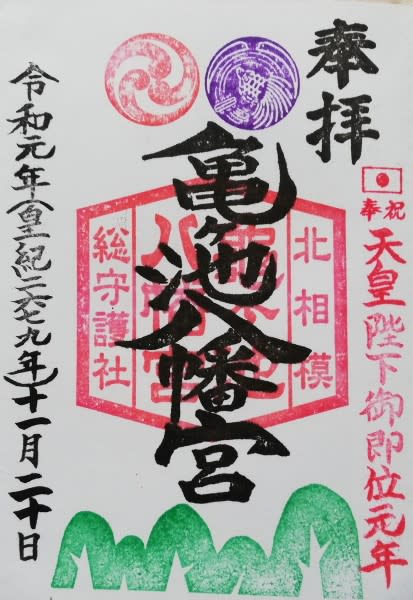 奉拝
奉祝
天皇陛下御即位元年
北相模
亀ヶ池八幡宮
総守護社
令和元年(皇紀二六七九年)十一月二十日